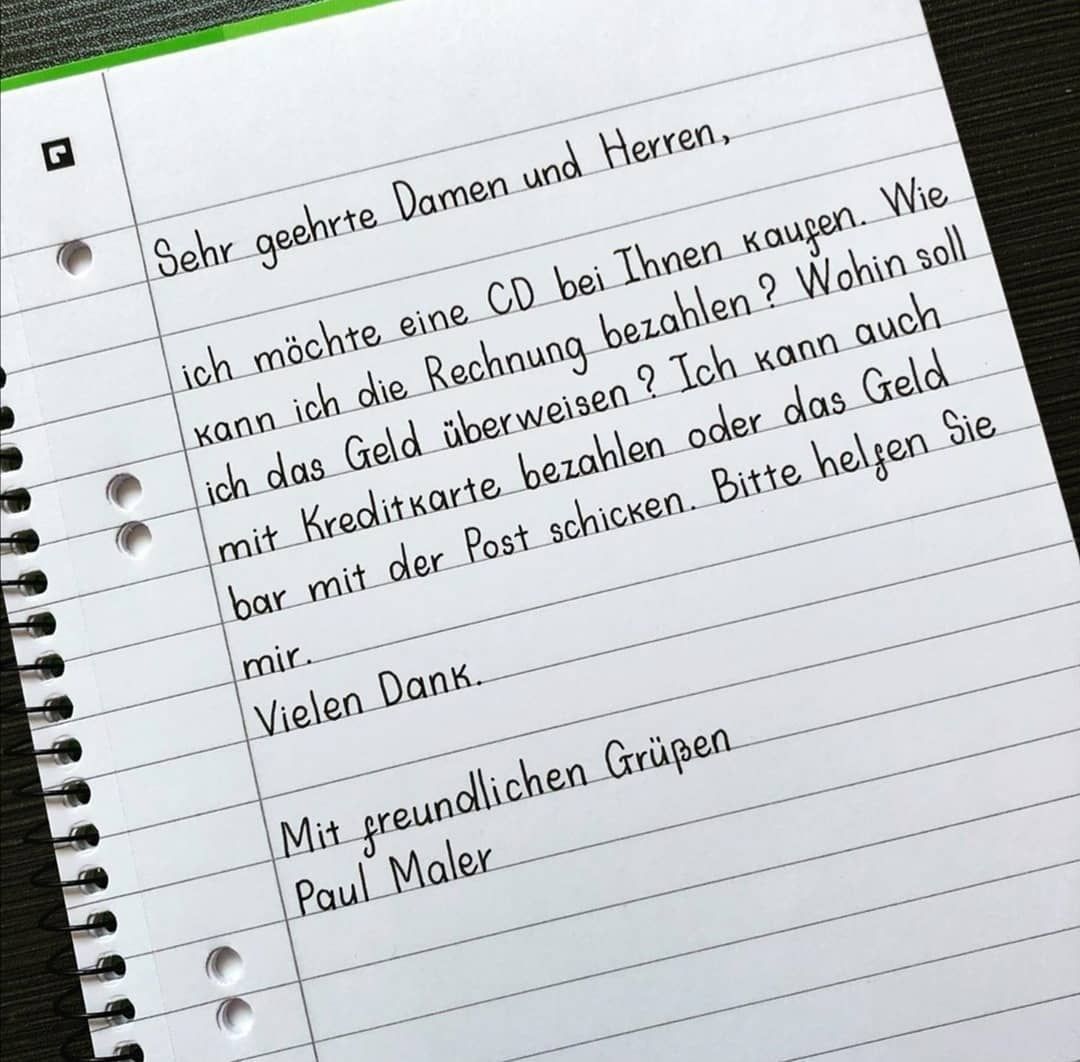 Sehr geehrte Damen und Herren,
ich möchte eine CD bei Ihnen kaufen. Wie
kann ich die Rechnung bezahlen? Wohin soll
ich das Geld überweisen? Ich kann auch
mit Kreditkarte bezahlen oder das Geld
bar mit der Post schicken. Bitte helfen Sie
mir.
Vielen Dank.
Mit freundlichen Grüßen
Paul Maler